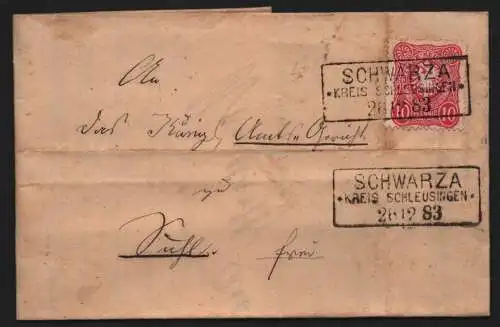 SCHWARZA
• KREIS SCHLEUSINGEN •
26 12 83
10 10
An
das Königl. Amts-Gericht
zu
Suhl.
frei
SCHWARZA
• KREIS SCHLEUSINGEN •
26 12 83